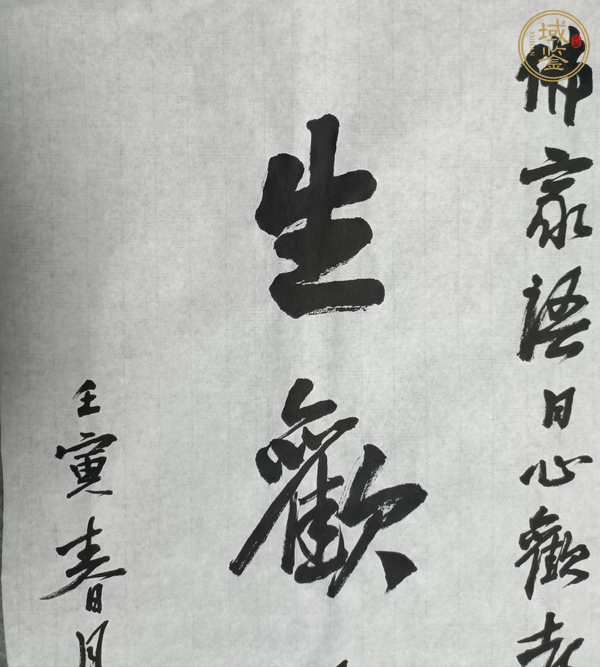 佛家語日心歡
生歡
壬寅春月
域鉴